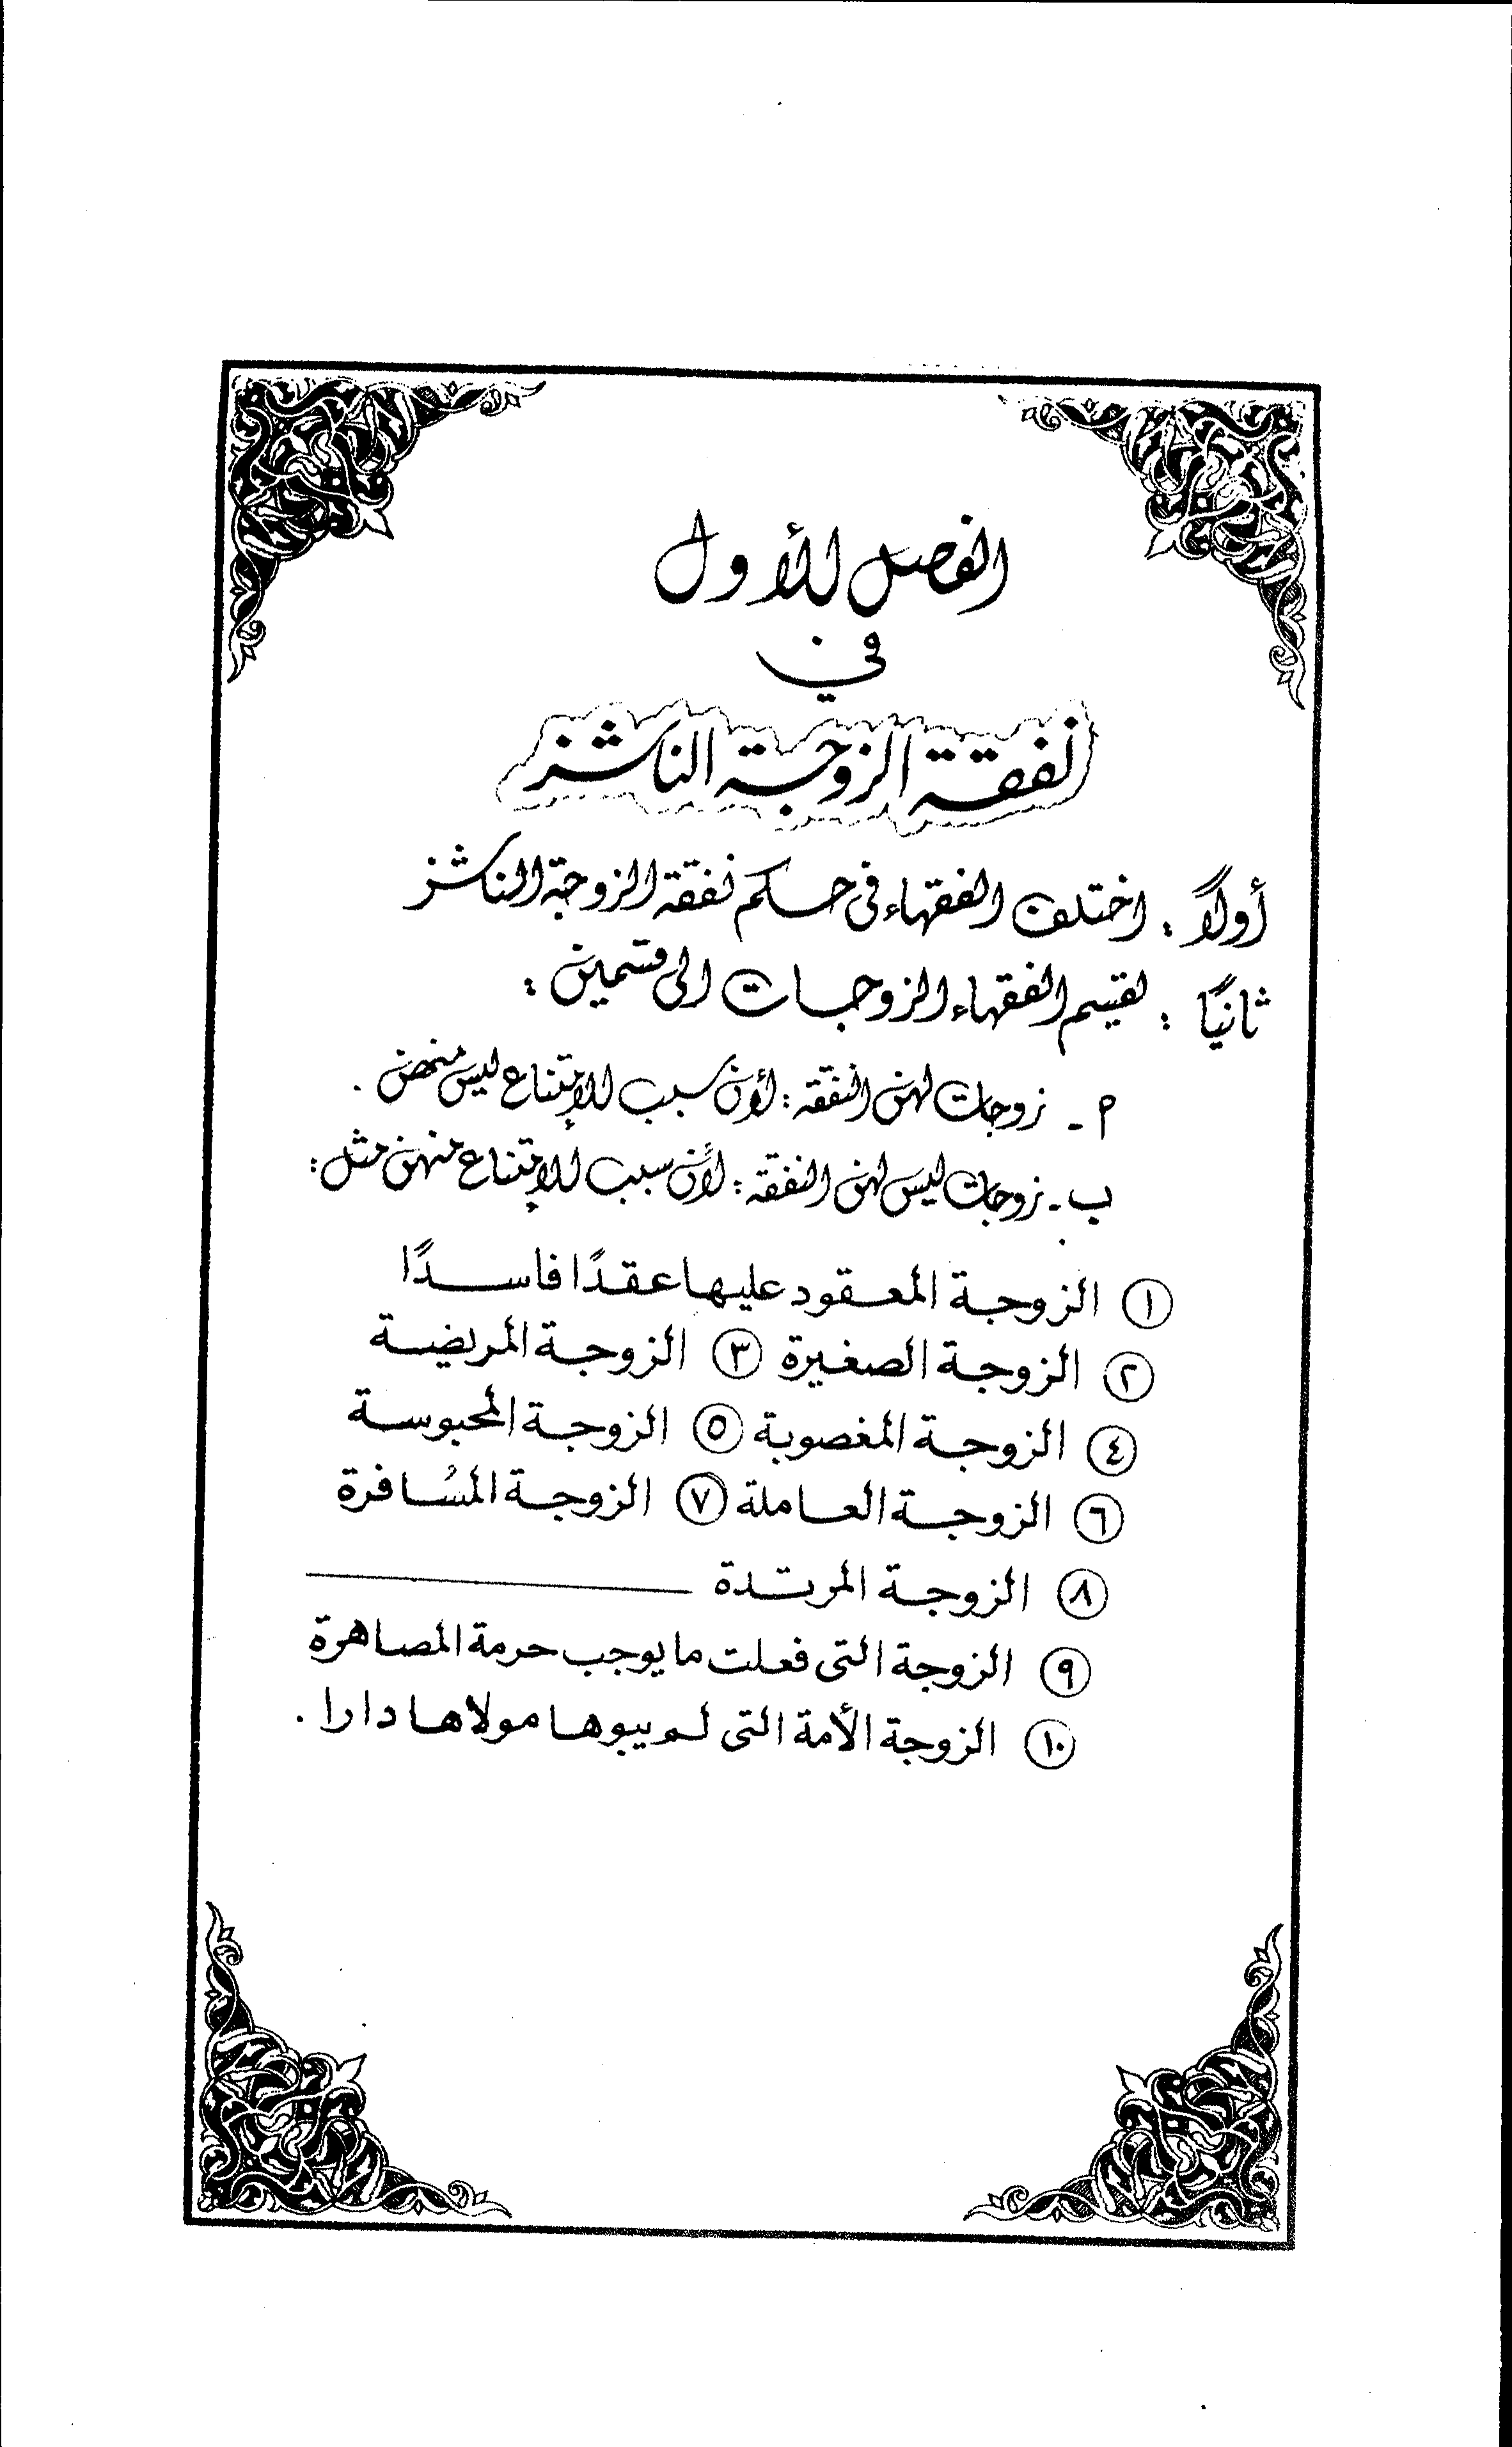 الفصل الأول
في
نفقة الزوجة الناشز
أولاً : اختلف الفقهاء فى حكم نفقة الزوجة الناشز
ثانيًا : تقسيم الفقهاء الزوجات الى قسمين :
م - زوجات لهن النفقه : لأن سبب الإمتناع ليس منهن .
ب - زوجات ليس لهن النفقه : لأن سبب الإمتناع منهن مثل :
١ الزوجة المعقود عليها عقدًا فاسدًا
٢ الزوجة الصغيرة ٣ الزوجة المريضة
٤ الزوجة المغصوبة ٥ الزوجة المحبوسة
٦ الزوجة العاملة ٧ الزوجة المسُافرة
٨ الزوجة المرتدة
٩ الزوجة التى فعلت ما يوجب حرمة المصاهرة
١٠ الزوجة الأمة التى لم يبوها مولاها دارا .